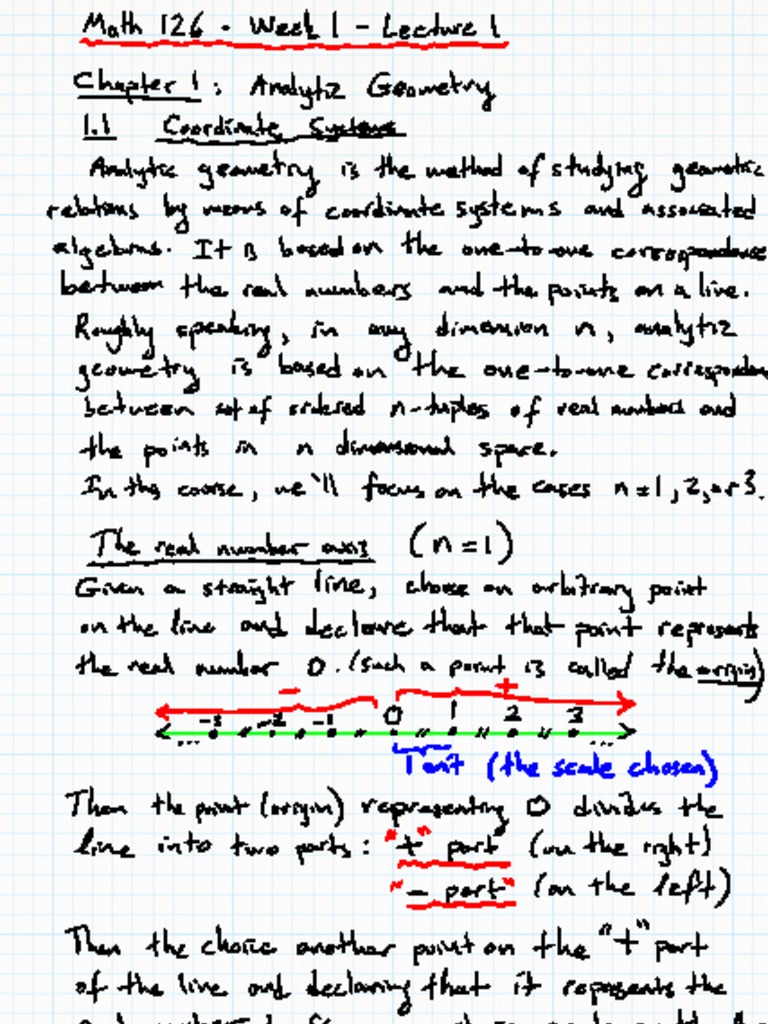 Math 126 - Week 1 - Lecture 1
Chapter 1: Analytic Geometry
1.1 Coordinate Systems
Analytic geometry is the method of studying geometric
relations by means of coordinate systems and associated
algebras. It is based on the one-to-one correspondence
between the real numbers and the points on a line.
Roughly speaking, in any dimension n, analytic
geometry is based on the one-to-one corresponden
between set of ordered n-tuples of real numbers and
the points in n dimensional space.
In this course, we'll focus on the cases n=1,2, or 3.
The real number axis (n=1)
Given a straight line, choose an arbitrary point
on the line and declare that that point represents
the real number 0. (such a point is called the origin)
- +
... -3 -2 -1 0 1 2 3 ...
1 unit (the scale chosen)
Then the point (origin) representing 0 divides the
line into two parts: "+" part (on the right)
"- part" (on the left)
Then the choice another point on the "+" part
of the line and declaring that it represents the